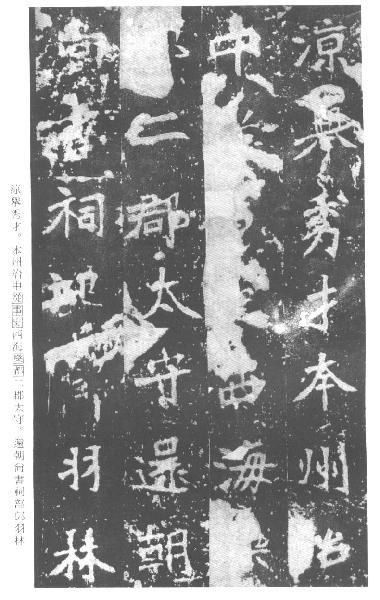 涼舉秀才本州治
中西海
二郡太守還朝
尚書祠部郎羽林
涼舉秀才。本州治中西海二郡太守。還朝尚書祠部郎羽林